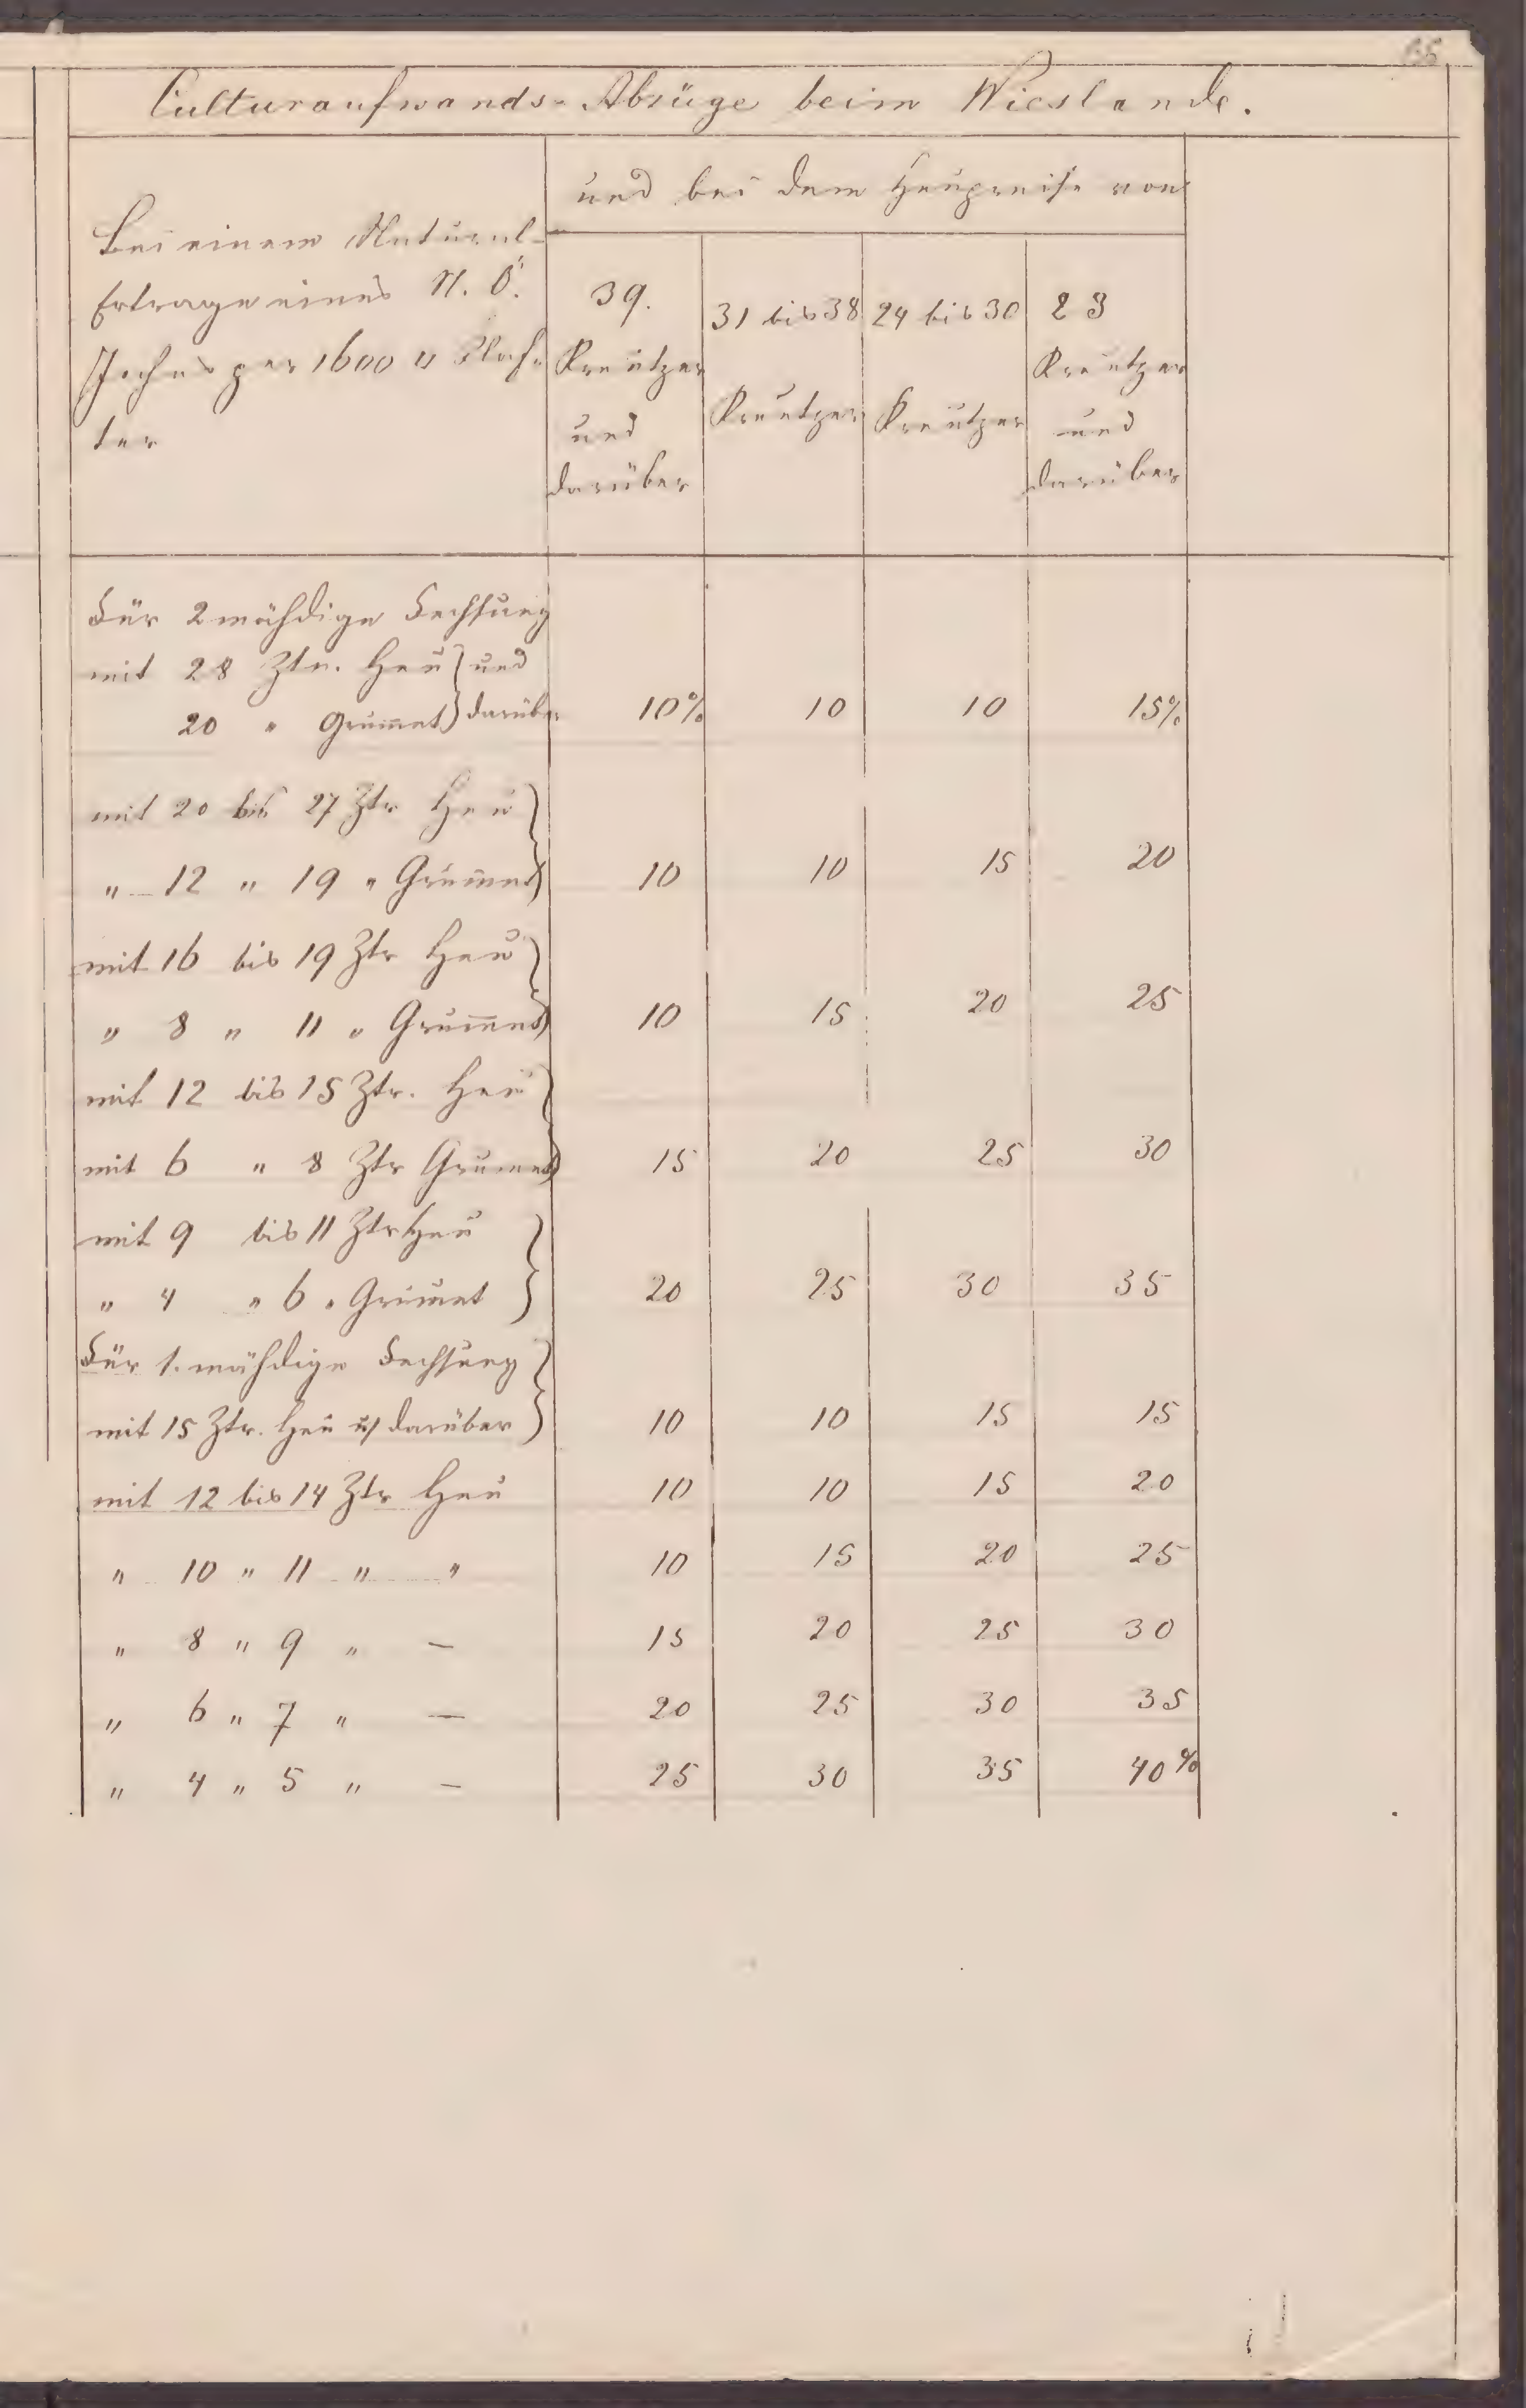 65
Culturaufwands-Abzüge beim Wieslande.
Bei einem Natural-
Ertrage eines N. Ö.
Joches per 1600 □ Klaf-
ter
und bei dem Heupreise von
39.
Kreutzer
und
darüber
31 bis 38
Kreutzer
24 bis 30
Kreutzer
23
Kreutzer
und
darüber
Für 2 mähdige Fechsung
mit 28 Ztr. Heu } und
20 " Grum̅et } darüber 10% 10 10 15%
mit 20 bis 27 Ztr Heu }
" 12 " 19 " Grum̅et } 10 10 15 20
mit 16 bis 19 Ztr Heu }
" 8 " 11 " Grum̅et } 10 15 20 25
mit 12 bis 15 Ztr. Heu }
mit 6 " 8 Ztr Grumet } 15 20 25 30
mit 9 bis 11 Ztr Heu }
" 4 " 6 " Grum̅et } 20 25 30 35
Für 1. mähdige Fechsung }
mit 15 Ztr. Heu u/ darüber } 10 10 15 15
mit 12 bis 14 Ztr Heu 10 10 15 20
" 10 " 11 " " 10 15 20 25
" 8 " 9 " — 15 20 25 30
" 6 " 7 " — 20 25 30 35
" 4 " 5 " — 25 30 35 40%